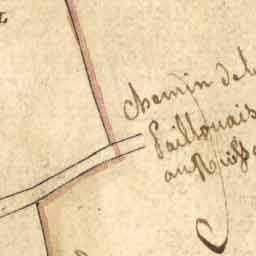 Chemin de la
Paillouais
au Ruiss